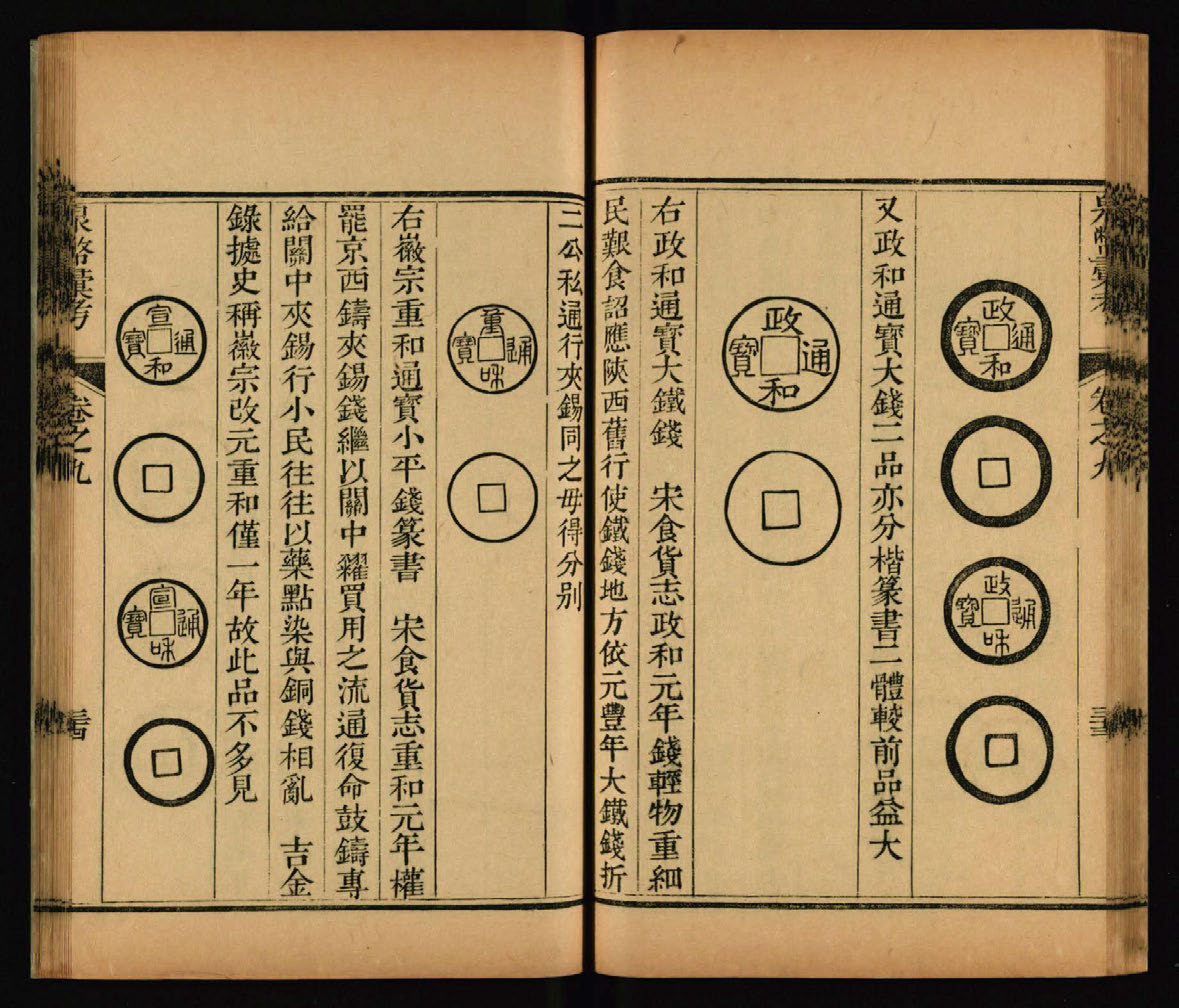 泉幣彙考
卷之九
三三
政和通寶
政和通寶
又政和通寶大錢二品亦分楷篆書二體較前品益大
政和通寶
右政和通寶大鐵錢 宋食貨志政和元年錢輕物重細
民艱食詔應陝西舊行使鐵錢地方依元豐年大鐵錢折
二公私通行夾錫同之毋得分別
重和通寶
右徽宗重和通寶小平錢篆書 宋食貨志重和元年權
罷京西鑄夾錫錢繼以關中糴買用之流通復命鼓鑄專
給關中夾錫行小民往往以藥點染與銅錢相亂 吉金
錄據史稱徽宗改元重和僅一年故此品不多見
宣和通寶
宣和通寶
泉幣彙考
卷之九
三十四